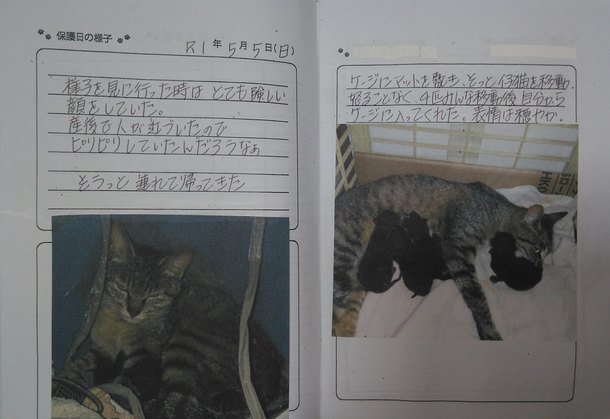 保護日の様子
R1年5月5日(日)
様子を見に行った時はとても険しい
顔をしていた。
産後で人が近づいたので
ピリピリしていたんだろうなぁ
そうっと連れて帰ってきた
ケージにマットを敷き、そっと仔猫を移動
怒ることなく4匹みんな移動後自分から
ケージに入ってくれた。表情は穏やか。